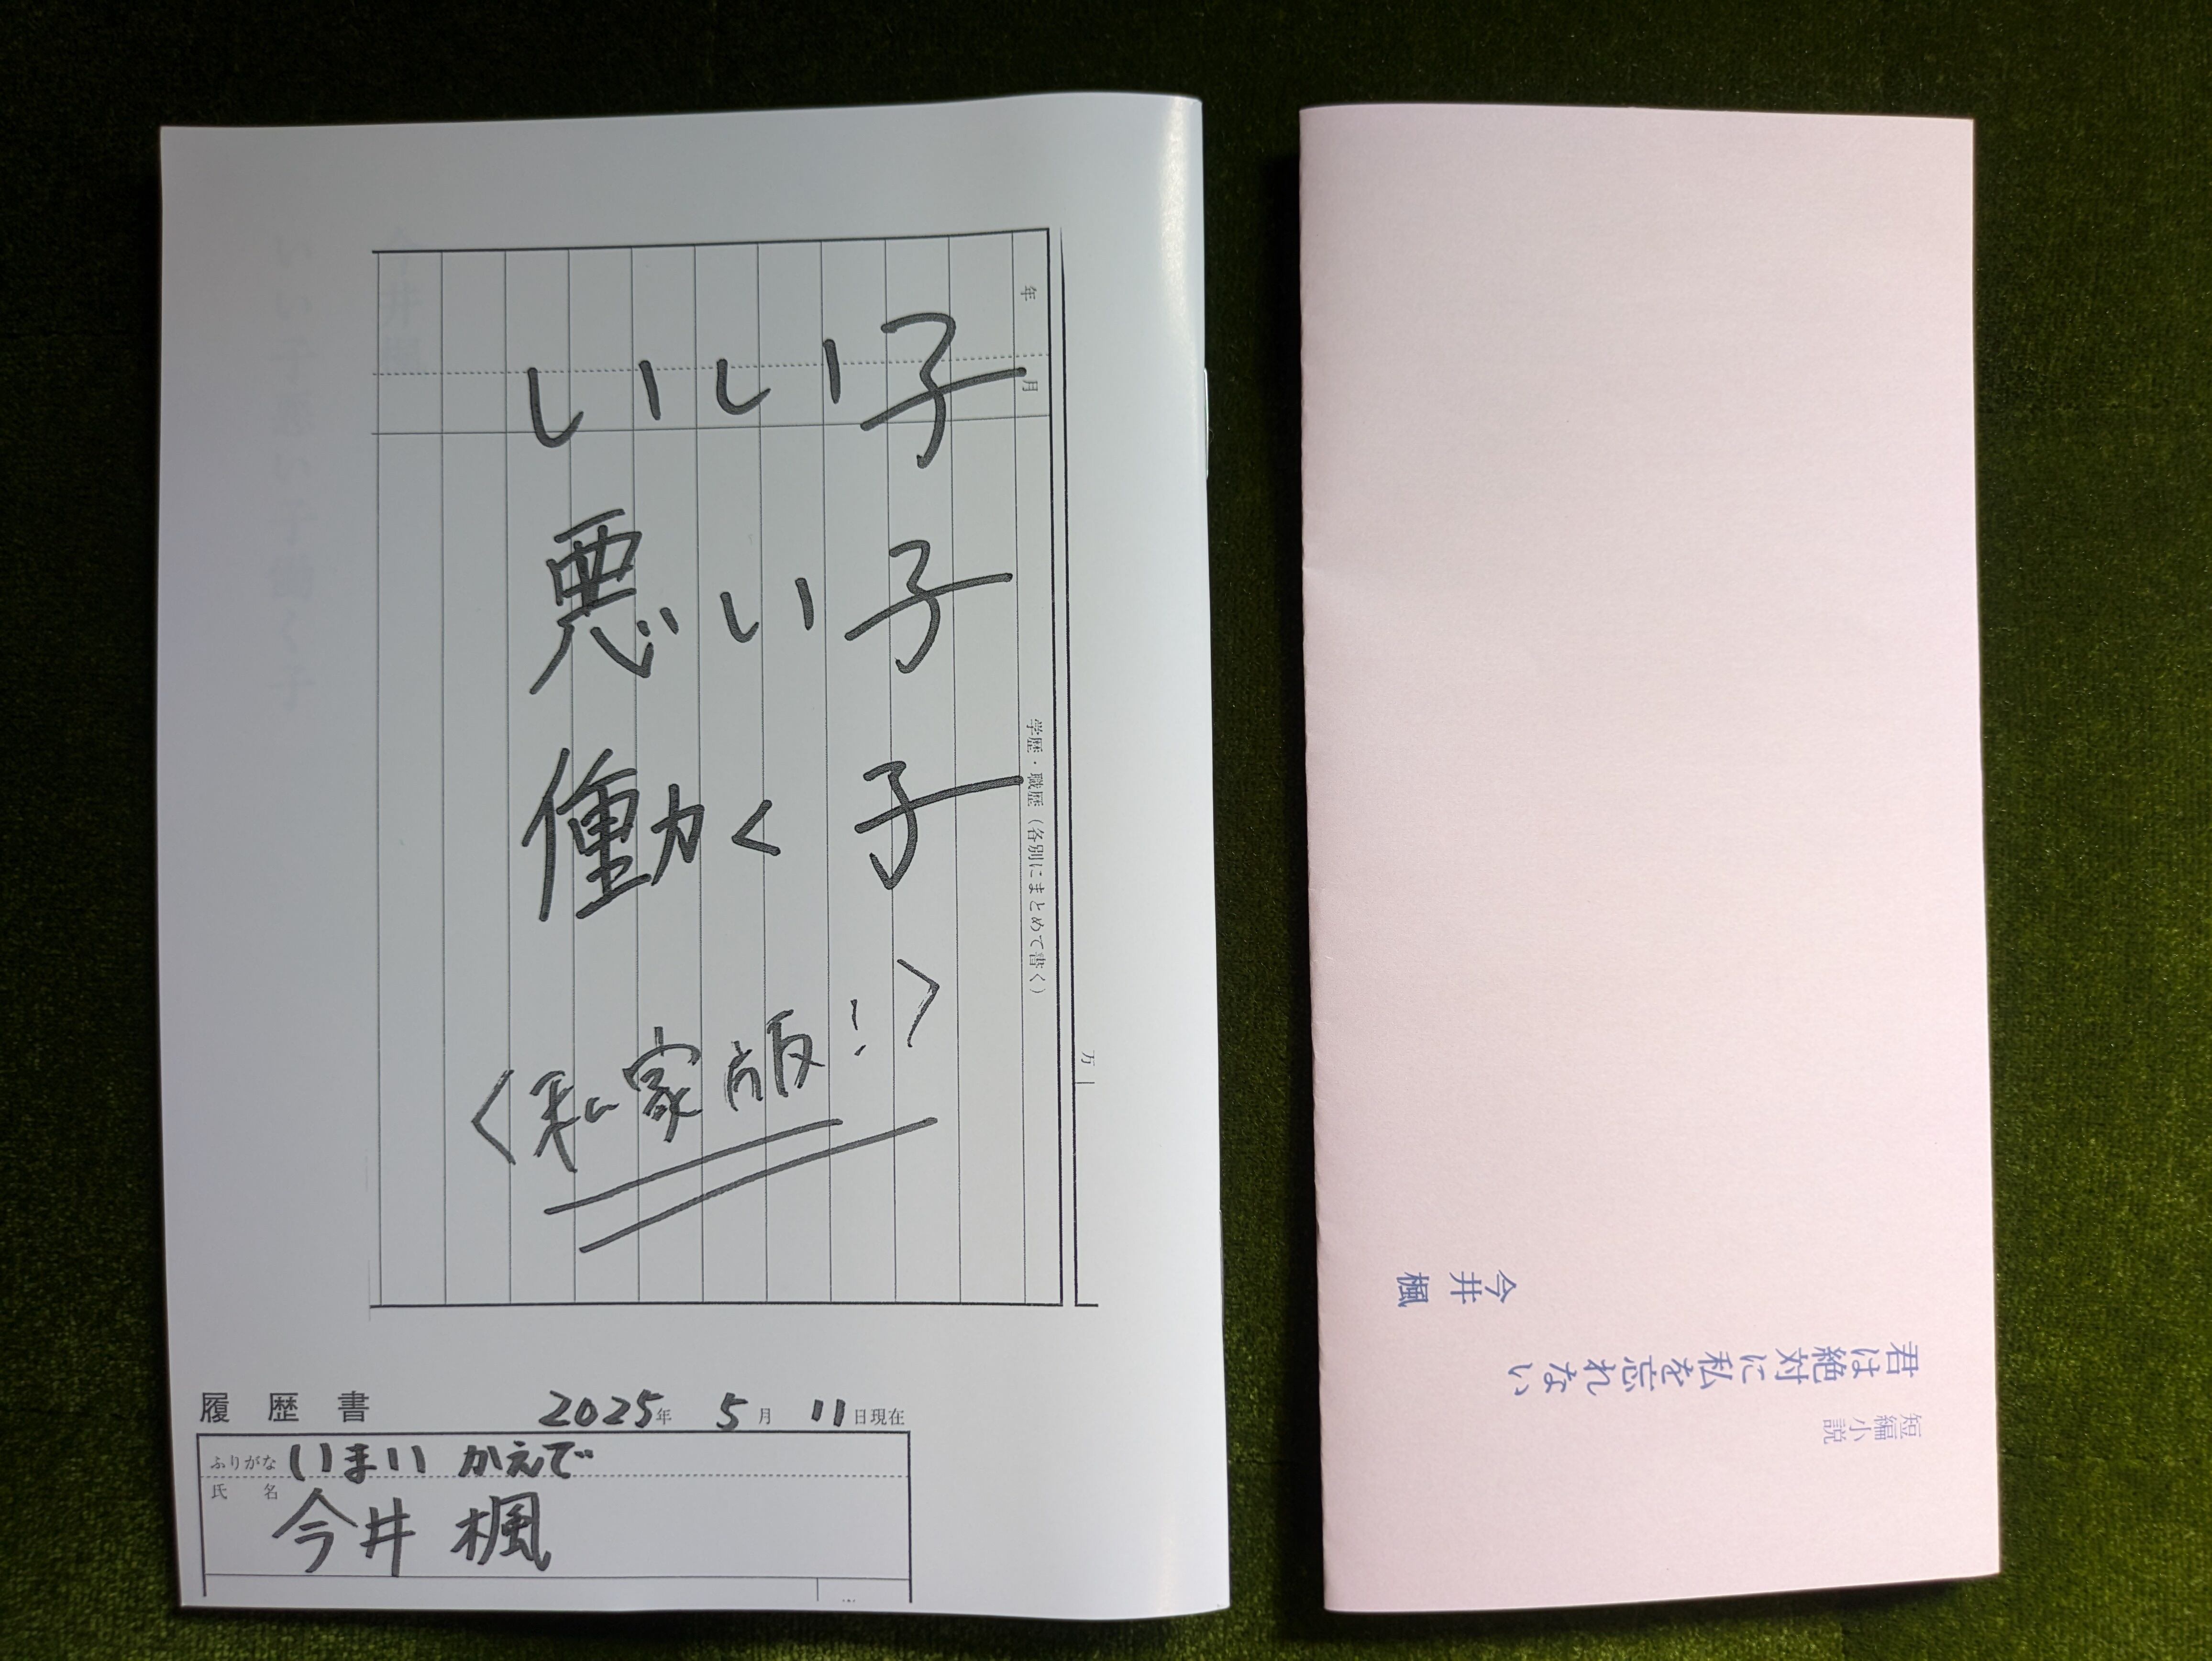 年
月
学歴・職歴（各別にまとめて書く）
いい子
悪い子
働く子
〈私家版！〉
履歴書
2025年 5月 11日現在
ふりがな いまい かえで
氏 名 今井 楓
短編小説
君は絶対に私を忘れない
今井 楓